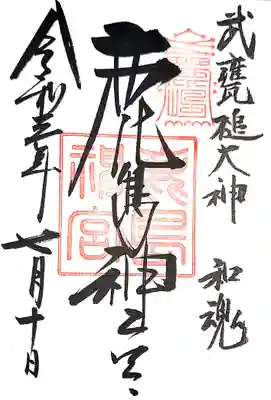 武甕槌大神 和魂
鹿島神宮
令和三年 七月十日